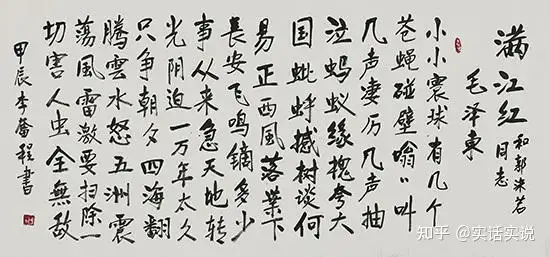 满江红
和郭沫若
同志
毛泽东
小小寰球有几个
苍蝇碰壁嗡〃叫
几声凄厉几声抽
泣蚂蚁缘槐夸大
国蚍蜉撼树谈何
易正西風落葉下
長安飞鸣镝多少
事从来急天地转
光阴迫一万年太久
只争朝夕四海翻
腾雲水怒五洲震
荡風雷激要扫除一
切害人虫全無敌
甲辰李馨程書
知乎 @实话实说